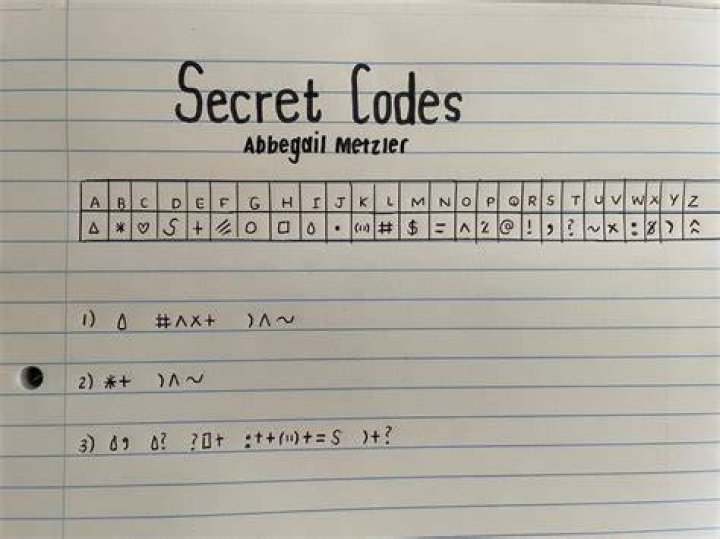 Secret Codes
Abbegail Metzler
A B C D E F G H I J K L M N O P Q R S T U V W X Y Z
△ * ♡ S + ⫽ ○ □ 💧 • (ıı) # $ = ^ 2 @ ! , ? ~ x : 8 ) ^^
1) 💧 #^x+ )^~
2) *+ )^~
3) 💧, 💧? ?□+ :++(ıı)+=S )+?